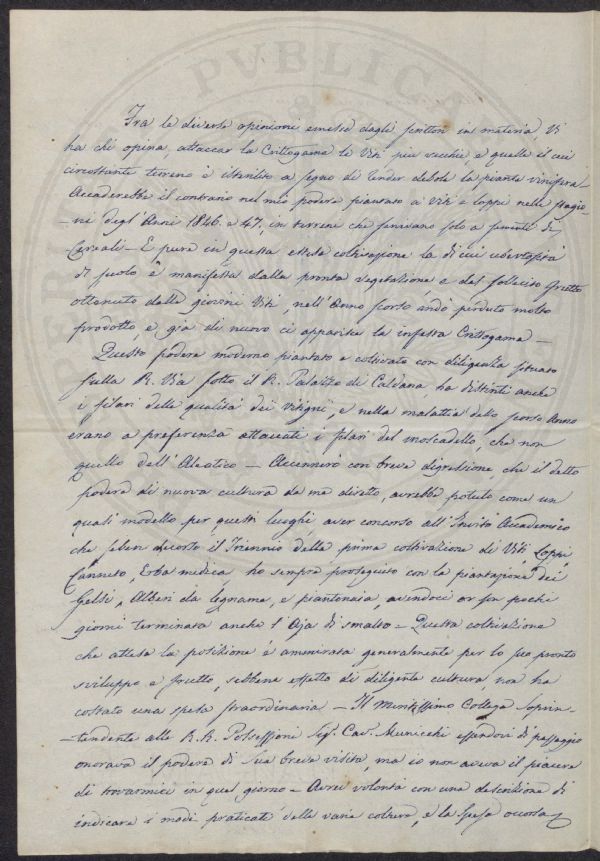 Fra le diverse opinioni emesse dagli scrittori in materia, vi
ha chi opina, attaccar la Crittogama le Viti più vecchie, e quelle il cui
circostante terreno è isterilito a segno di render debole la pianta vinifera.
Accaderebbe il contrario nel mio podere piantato a viti e loppi nelle stagio-
-ni degl'Anni 1846. e 47, in terreni che servivano solo a sementi di
Cereali - E pure in questa estesa coltivazione la di cui ubertosità
di suolo è manifesta dalla pronta vegetazione e dal sollecito frutto
ottenuto dalle giovani Viti, nell'Anno scorso andò perduto molto
prodotto, e già di nuovo ci apparisce la infesta Crittogama -
Questo podere moderno piantato e coltivato con diligenza situato
sulla R. Via sotto il R. Palazzo di Caldana, ha distinti anche
i filari delle qualità dei Vitigni, e nella malattia dello scorso Anno
erano a preferenza attaccati i filari del moscadello, che non
quello dell'Aleatico - Accennerò con breve digressione, che il detto
podere di nuova cultura da me diretto, avrebbe potuto come un
quasi modello per questi luoghi, aver concorso all'Invito Accademico
che seben decorso il Triennio della prima coltivazione di Viti, Loppi
Canneto, Erba medica, ho sempre proseguito con la piantazione dei
Gelsi, Alberi da legname, e piantonaia, avendoci or son pochi
giorni terminata anche l'Aja di smalto - Questa coltivazione
che attesa la posizione è ammirata generalmente per lo suo pronto
sviluppo e frutto, sebbene effetto di diligente cultura, non ha
costato una spesa straordinaria - Il meritissimo Collega Soprin-
-tendente alle R.R. Possessioni Sig. Cav. essendovi di passaggio
onorava il podere di sua breve visita, ma io non aveva il piacere
di trovarmici in quel giorno - Avrei volentà con una descrizione di
indicare i modi praticati delle varie colture, e la spesa occorsa